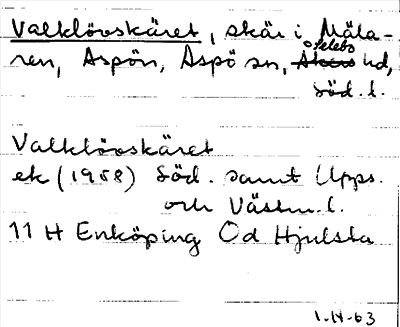 Valklövskäret, skär i Mäla-
ren, Aspön, Aspö sn, Selebo hd,
Söd. l.
Valklövskäret
ek (1958) Söd. samt Upps.
och Västm. l.
11 H Enköping Öd Hjulsta
1-H-63